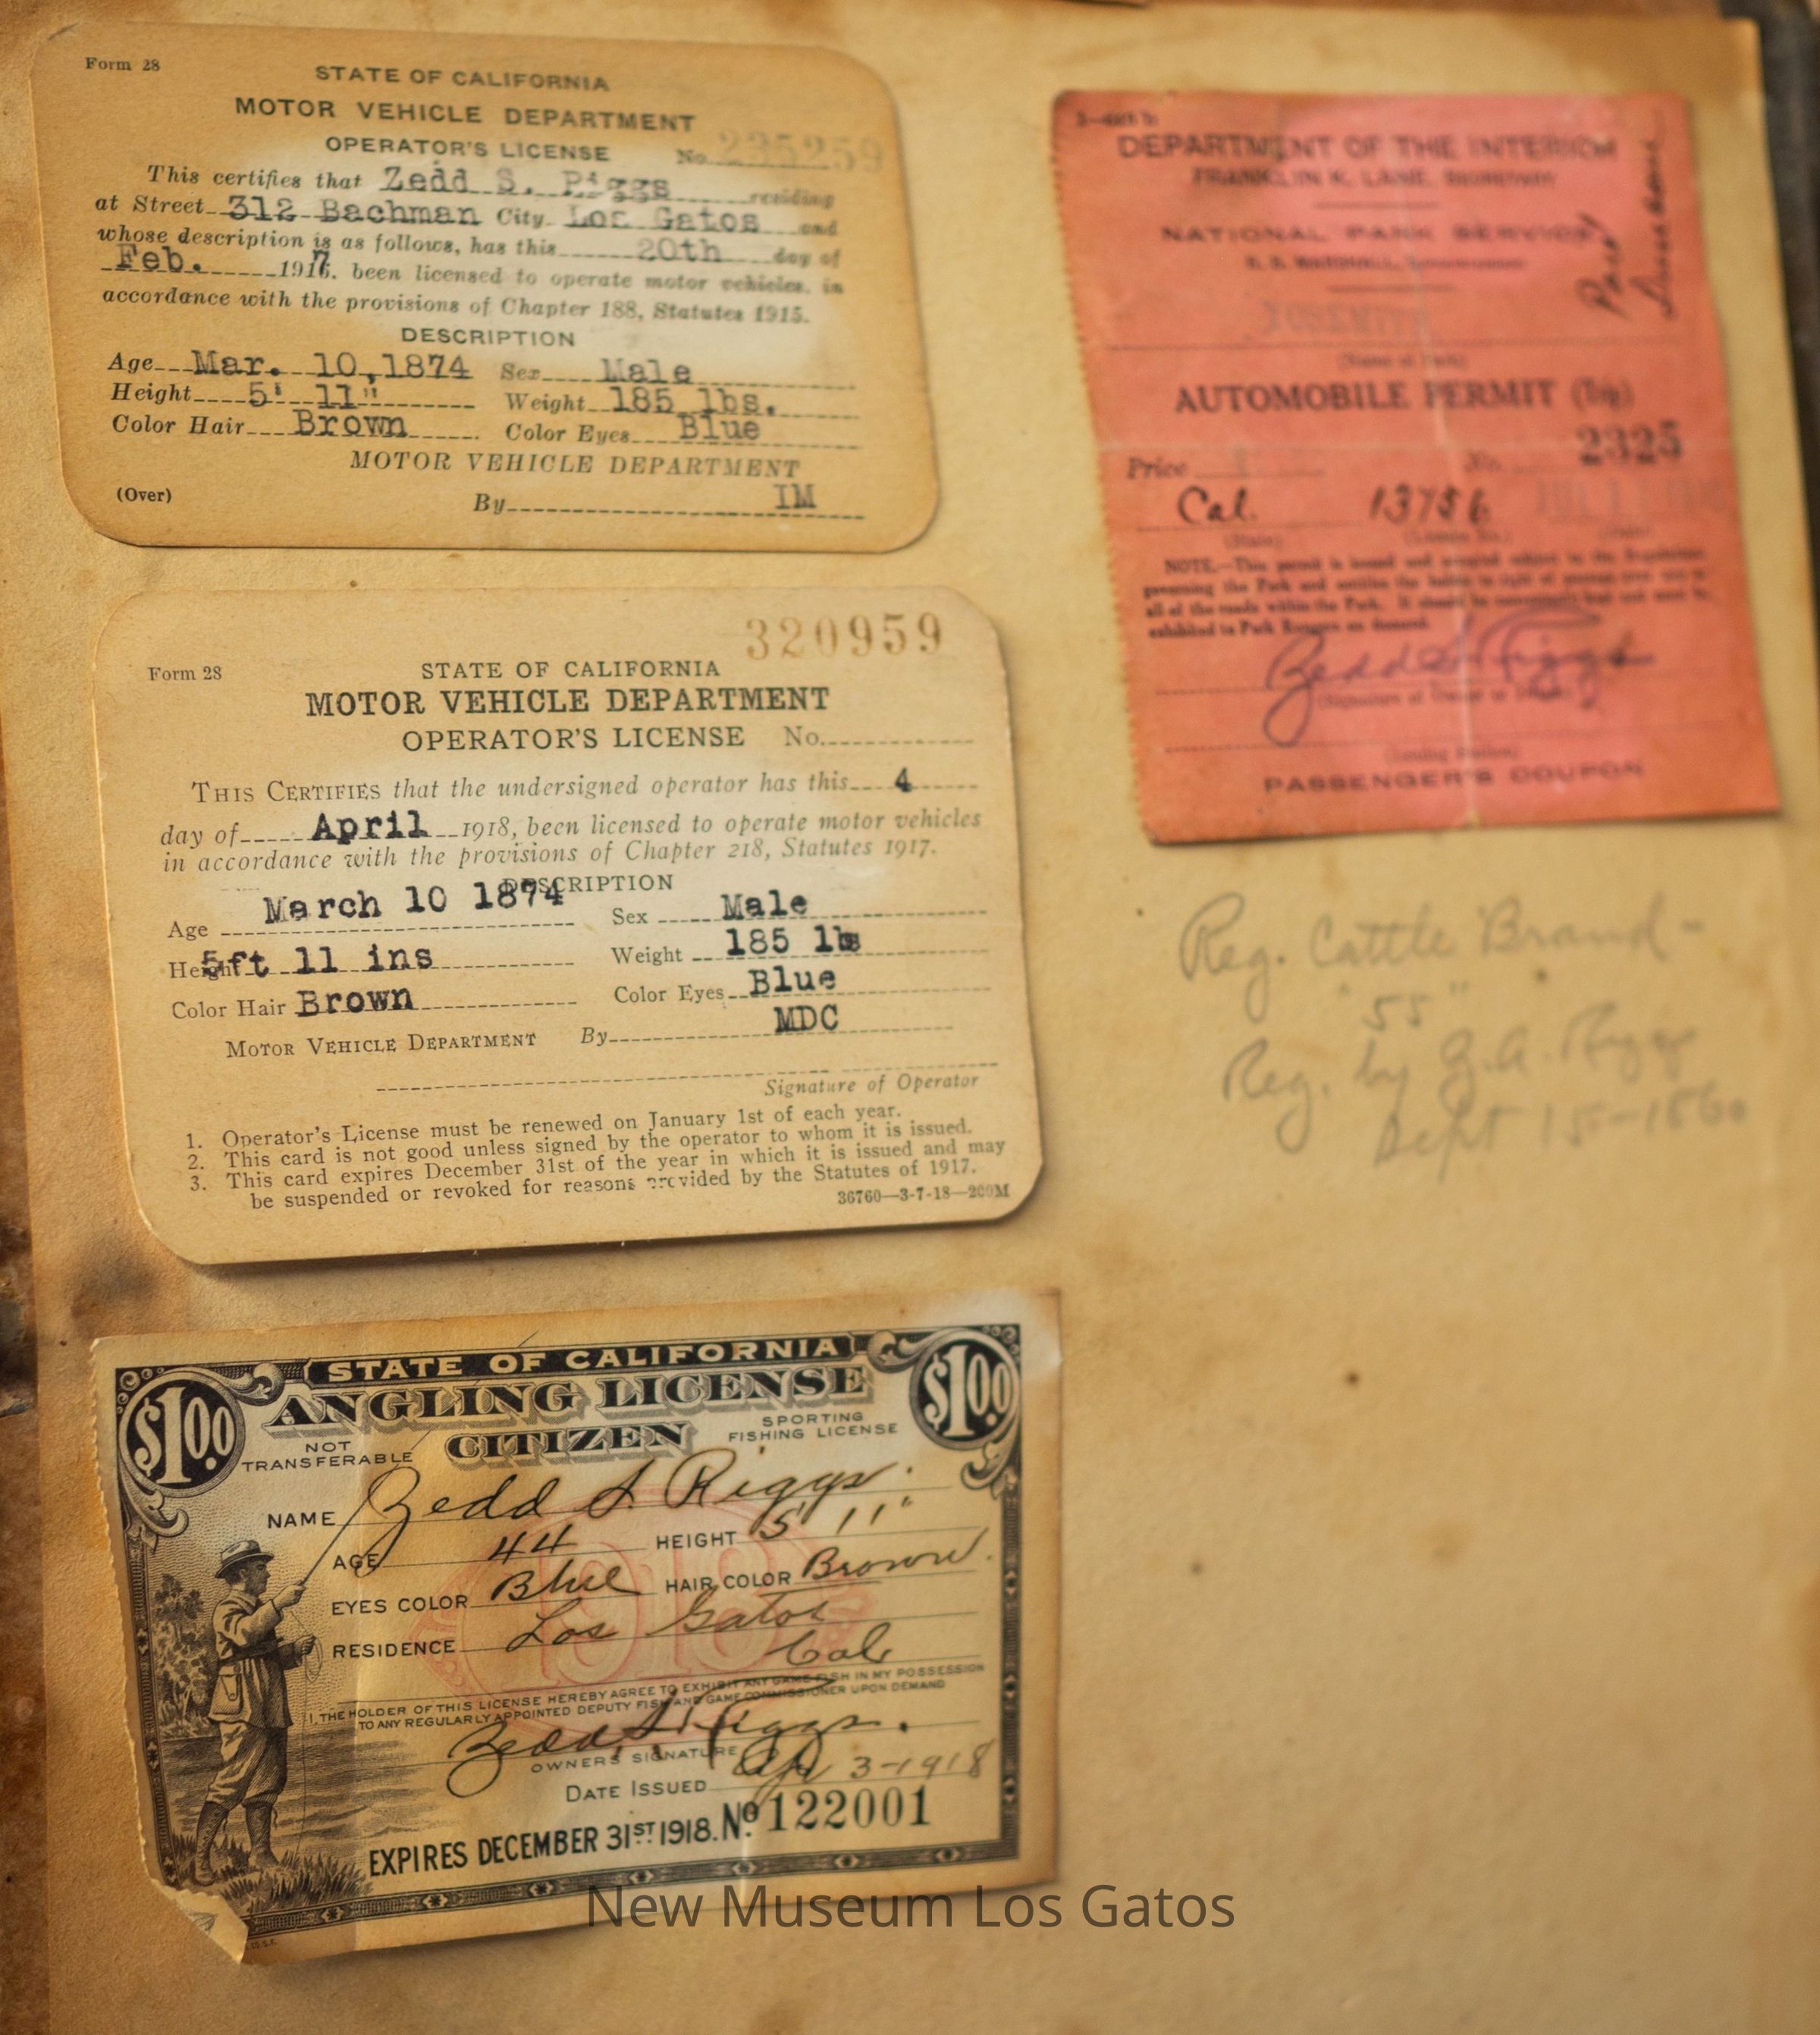 Form 28
STATE OF CALIFORNIA
MOTOR VEHICLE DEPARTMENT
OPERATOR'S LICENSE No. 235259
This certifies that Zedd S. Riggs residing
at Street 312 Bachman City Los Gatos and
whose description is as follows, has this 20th day of
Feb. 1917. been licensed to operate motor vehicles, in
accordance with the provisions of Chapter 188, Statutes 1915.
DESCRIPTION
Age Mar. 10,1874 Sex Male
Height 5' 11" Weight 185 lbs.
Color Hair Brown Color Eyes Blue
MOTOR VEHICLE DEPARTMENT
(Over) By IM
320959
Form 28 STATE OF CALIFORNIA
MOTOR VEHICLE DEPARTMENT
OPERATOR'S LICENSE No.
THIS CERTIFIES that the undersigned operator has this 4
day of April 1918, been licensed to operate motor vehicles
in accordance with the provisions of Chapter 218, Statutes 1917.
DESCRIPTION
Age March 10 1874 Sex Male
Height 5ft 11 ins Weight 185 lbs
Color Hair Brown Color Eyes Blue
MOTOR VEHICLE DEPARTMENT By MDC
Signature of Operator
1. Operator's License must be renewed on January 1st of each year.
2. This card is not good unless signed by the operator to whom it is issued.
3. This card expires December 31st of the year in which it is issued and may
be suspended or revoked for reasons provided by the Statutes of 1917.
36760—3-7-18—200M
STATE OF CALIFORNIA
$1.00 ANGLING LICENSE $1.00
NOT TRANSFERABLE CITIZEN SPORTING FISHING LICENSE
NAME Zedd S Riggs
AGE 44 HEIGHT 5' 11"
EYES COLOR Blue HAIR COLOR Brown.
RESIDENCE Los Gatos
Cal
1918
I, THE HOLDER OF THIS LICENSE HEREBY AGREE TO EXHIBIT ANY GAME FISH IN MY POSSESSION
TO ANY REGULARLY APPOINTED DEPUTY FISH AND GAME COMMISSIONER UPON DEMAND
Zedd S. Riggs.
OWNERS SIGNATURE
DATE ISSUED Ap 3-1918
EXPIRES DECEMBER 31ST 1918. No 122001
DEPARTMENT OF THE INTERIOR
FRANKLIN K. LANE, SECRETARY
NATIONAL PARK SERVICE
R. B. MARSHALL,
YOSEMITE
(Name of Park)
AUTOMOBILE PERMIT (Trip)
Price No. 2325
Cal. 13756
(State) (License No.) (Date)
NOTE.—This permit is issued and accepted subject to the Regulations
governing the Park and entitles the holder to right of passage over
all of the roads within the Park. It should be conveniently kept and must be
exhibited to Park Rangers on demand.
Zedd S Riggs
(Signature of Owner or Driver)
(Issuing Station)
PASSENGER'S COUPON
Reg. Cattle Brand -
"55"
Reg. by Z.A. Riggs
Sept 15-1860
New Museum Los Gatos